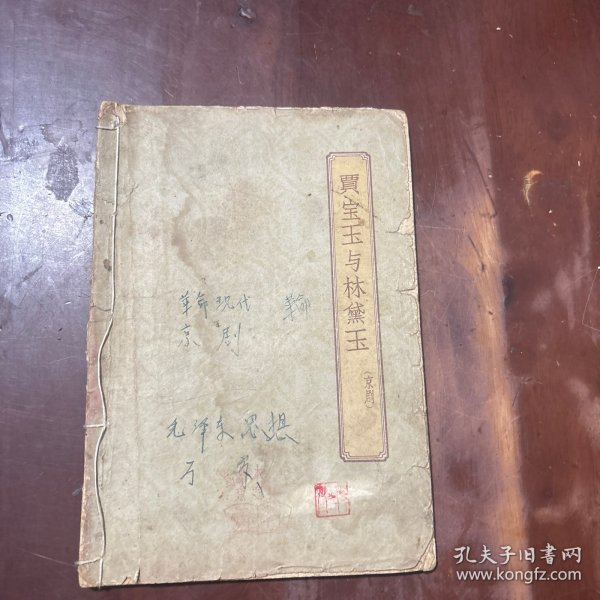 賈宝玉与林黛玉
(京剧)
革命现代 革命
京剧
毛泽东思想
万岁
孔夫子旧书网
www.kongfz.com